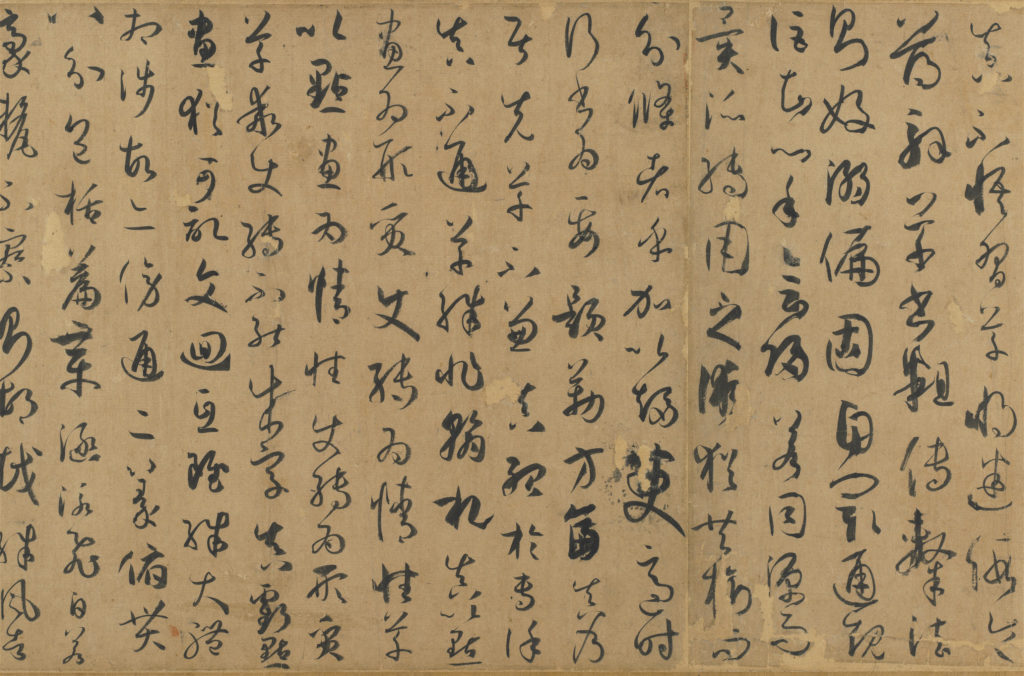 真不悟習草將迷假令
薄解草書麤傳隸法
則好溺偏固自閡通規
詎知心手會歸若同源而
異派轉用之術猶共樹而
分條者乎加以趨變適時
行書為要題勒方畐真乃
居先草不兼真殆於專謹
真不通草殊非翰札真以點
畫為形質使轉為情性草
以點畫為情性使轉為形質
草乖使轉不能成字真虧點
畫猶可記文迴互雖殊大體
相涉故亦傍通二篆俯貫
八分包括篇章涵泳飛白若
豪釐不察則胡越殊風者